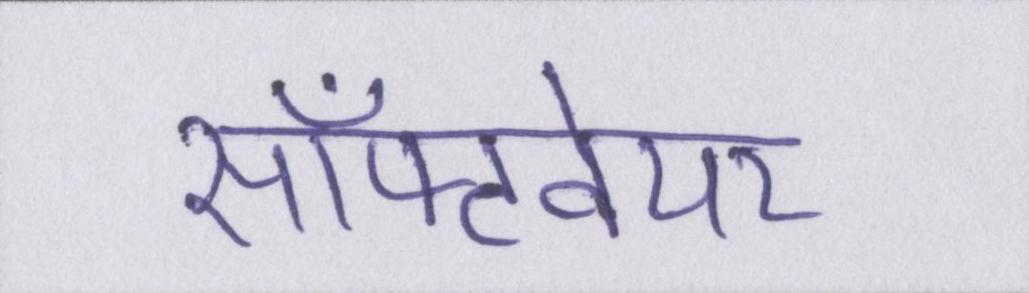 सॉंफ्टवेयर